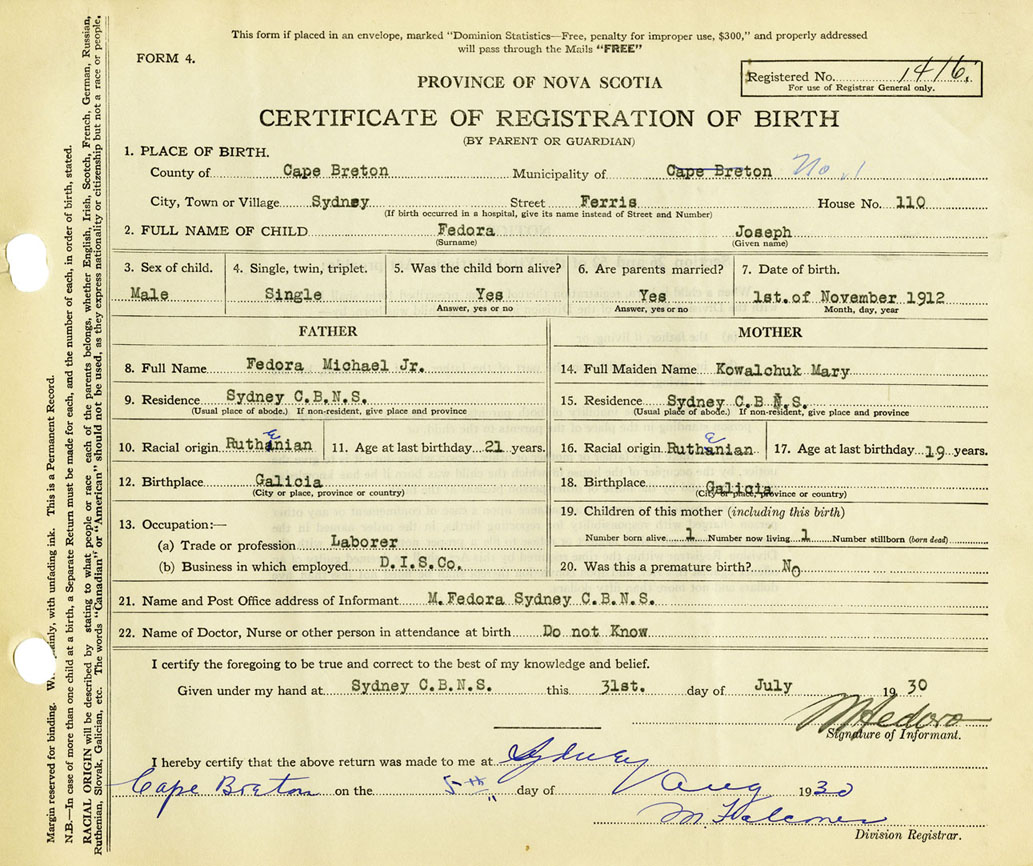 This form if placed in an envelope, marked "Dominion Statistics—Free, penalty for improper use, $300," and properly addressed
will pass through the Mails "FREE"
FORM 4.
PROVINCE OF NOVA SCOTIA
Registered No. 1416.
For use of Registrar General only.
CERTIFICATE OF REGISTRATION OF BIRTH
(BY PARENT OR GUARDIAN)
1. PLACE OF BIRTH.
County of Cape Breton Municipality of Cape Breton No. 1
City, Town or Village Sydney Street Ferris House No. 110
(If birth occurred in a hospital, give its name instead of Street and Number)
2. FULL NAME OF CHILD Fedora Joseph
(Surname) (Given name)
3. Sex of child. 4. Single, twin, triplet. 5. Was the child born alive? 6. Are parents married? 7. Date of birth.
Male Single Yes Yes 1st. of November 1912
Answer, yes or no Answer, yes or no Month, day, year
FATHER MOTHER
8. Full Name Fedora Michael Jr. 14. Full Maiden Name Kowalchuk Mary
9. Residence Sydney C.B.N.S. 15. Residence Sydney C.B N.S.
(Usual place of abode.) If non-resident, give place and province (Usual place of abode.) If non-resident, give place and province
10. Racial origin Ruthenian 11. Age at last birthday 21 years. 16. Racial origin Ruthenian 17. Age at last birthday 19 years.
12. Birthplace Galicia 18. Birthplace Galicia
(City or place, province or country) (City or place, province or country)
13. Occupation:— 19. Children of this mother (including this birth)
(a) Trade or profession Laborer Number born alive 1 Number now living 1 Number stillborn (born dead)
(b) Business in which employed D.I.S.Co. 20. Was this a premature birth? No
21. Name and Post Office address of Informant M.Fedora Sydney C.B.N.S.
22. Name of Doctor, Nurse or other person in attendance at birth Do not Know
I certify the foregoing to be true and correct to the best of my knowledge and belief.
Given under my hand at Sydney C.B.N.S. this 31st. day of July 1930
M Fedora
Signature of Informant.
I hereby certify that the above return was made to me at Sydney
Cape Breton on the 5th day of Aug 1930
M. Falconer
Division Registrar.
Margin reserved for binding. ainly, with unfading ink. This is a Permanent Record.
N.B.—In case of more than one child at a birth, a Separate Return must be made for each, and the number of each, in order of birth, stated.
RACIAL ORIGIN will be described by stating to what people or race each of the parents belongs, whether English, Irish, Scotch, French, German, Russian,
Ruthenian, Slovak, Galician, etc. The words "Canadian" or "American" should not be used, as they express nationality or citizenship but not a race or people.